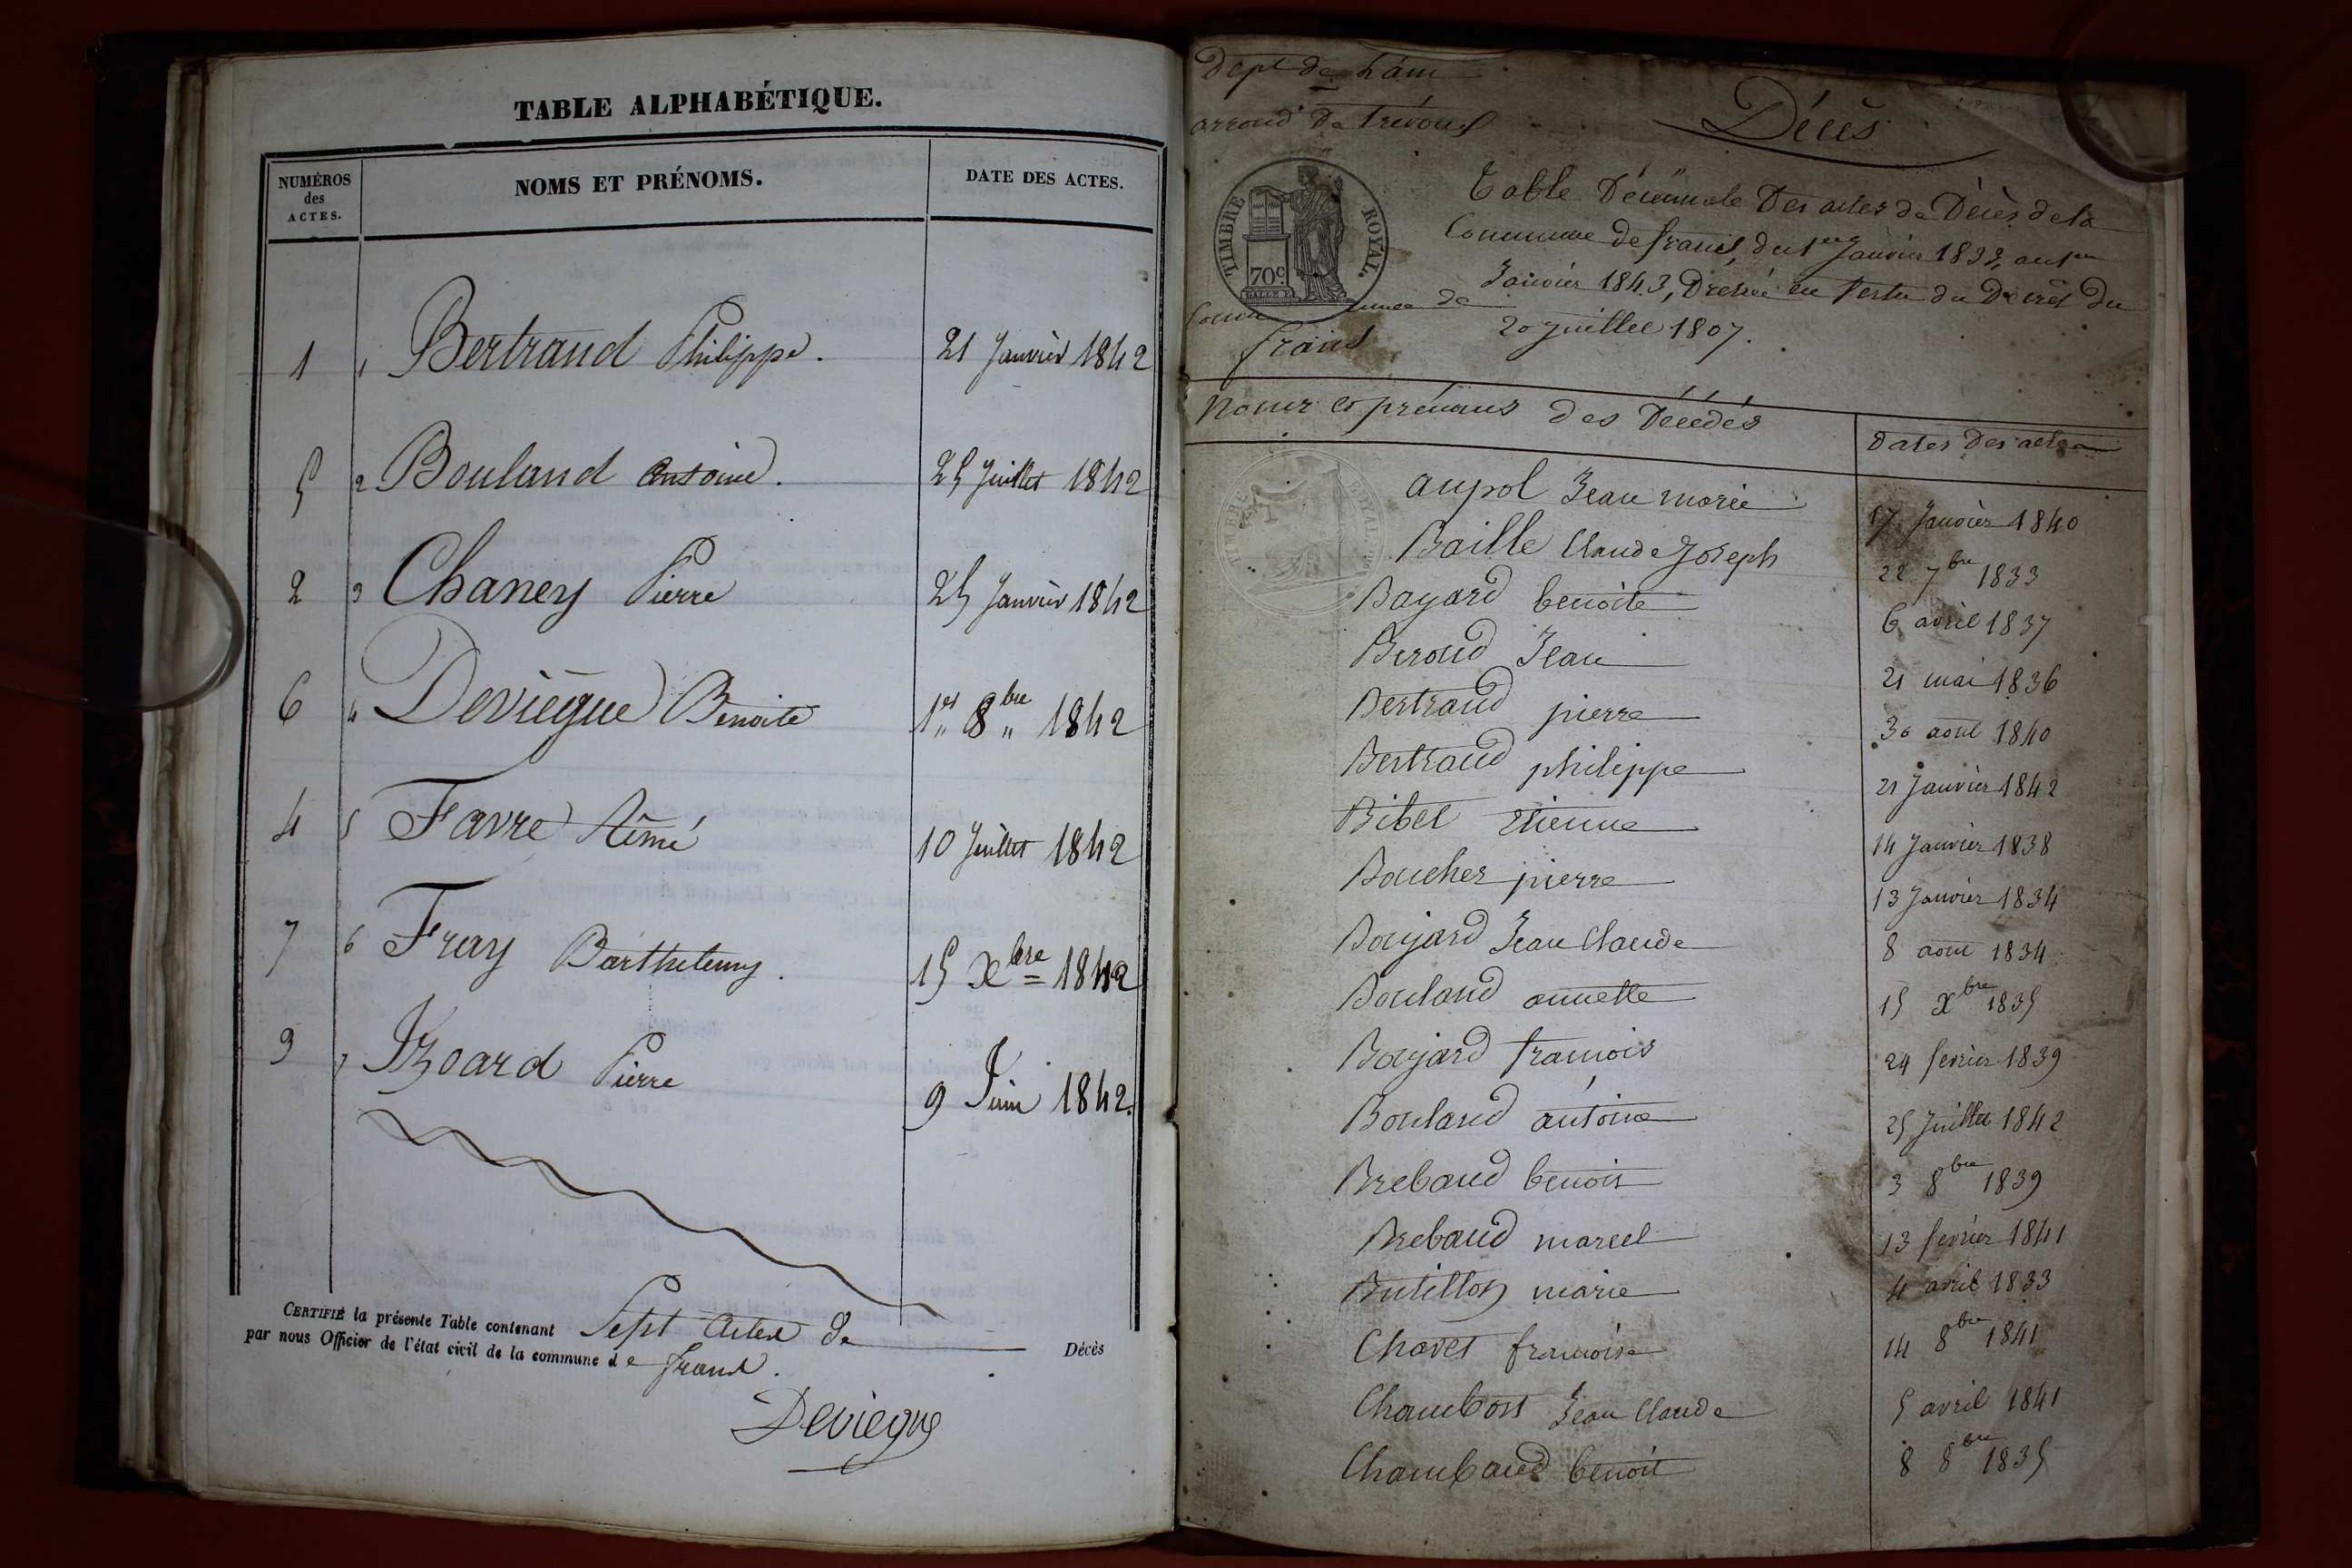 TABLE ALPHABÉTIQUE.
NUMÉROS des ACTES. NOMS ET PRÉNOMS. DATE DES ACTES.
1 1 Bertrand Philippe. 21 Janvier 1842
5 2 Bouland Antoine. 25 Juillet 1842
2 3 Chaney Pierre 25 Janvier 1842
6 4 Deviègue Benoite 1er 8bre 1842
4 5 Favre Aimé 10 Juillet 1842
7 6 Fray Barthelemy. 15 Xbre 1842
3 7 Izoard Pierre 9 Juin 1842.
CERTIFIÉ la présente Table contenant Sept Actes de Décès
par nous Officier de l'état civil de la commune de frans.
Deviegue
Dept de L'ain
arrond t de Trévoux
Décès
TIMBRE ROYAL.
70c.
Table Décennale Des actes de Décès de la
Commune de frans, du 1er Janvier 1833, au 1er
Janvier 1843, Dréssée en Vertu du Décrêt du
20 Juillet 1807.
Commune de
frans
Noms et prénoms des Décédés Dates Des actes
TIMBRE ROYAL
aupol Jean marie 17 Janvier 1840
Baille Claude Joseph 22 7bre 1833
Bayard benoite 6 avril 1837
Beroud Jean 21 mai 1836
Bertrand pierre 30 aout 1840
Bertrand philippe 21 Janvier 1842
Bibet etienne 14 Janvier 1838
Boucher pierre 13 Janvier 1834
Boujard Jean Claude 8 aout 1834
Bouland annette 15 Xbre 1835
Boujard francois 24 fevrier 1839
Bouland antoine 25 Juillet 1842
Brebaud benoit 3 8bre 1839
Brebaud marcel 13 fevrier 1841
Butillon marie 4 avril 1833
Chavet francoise 14 8bre 1841
Chambost Jean Claude 5 avril 1841
Chambaud benoit 8 8bre 1835